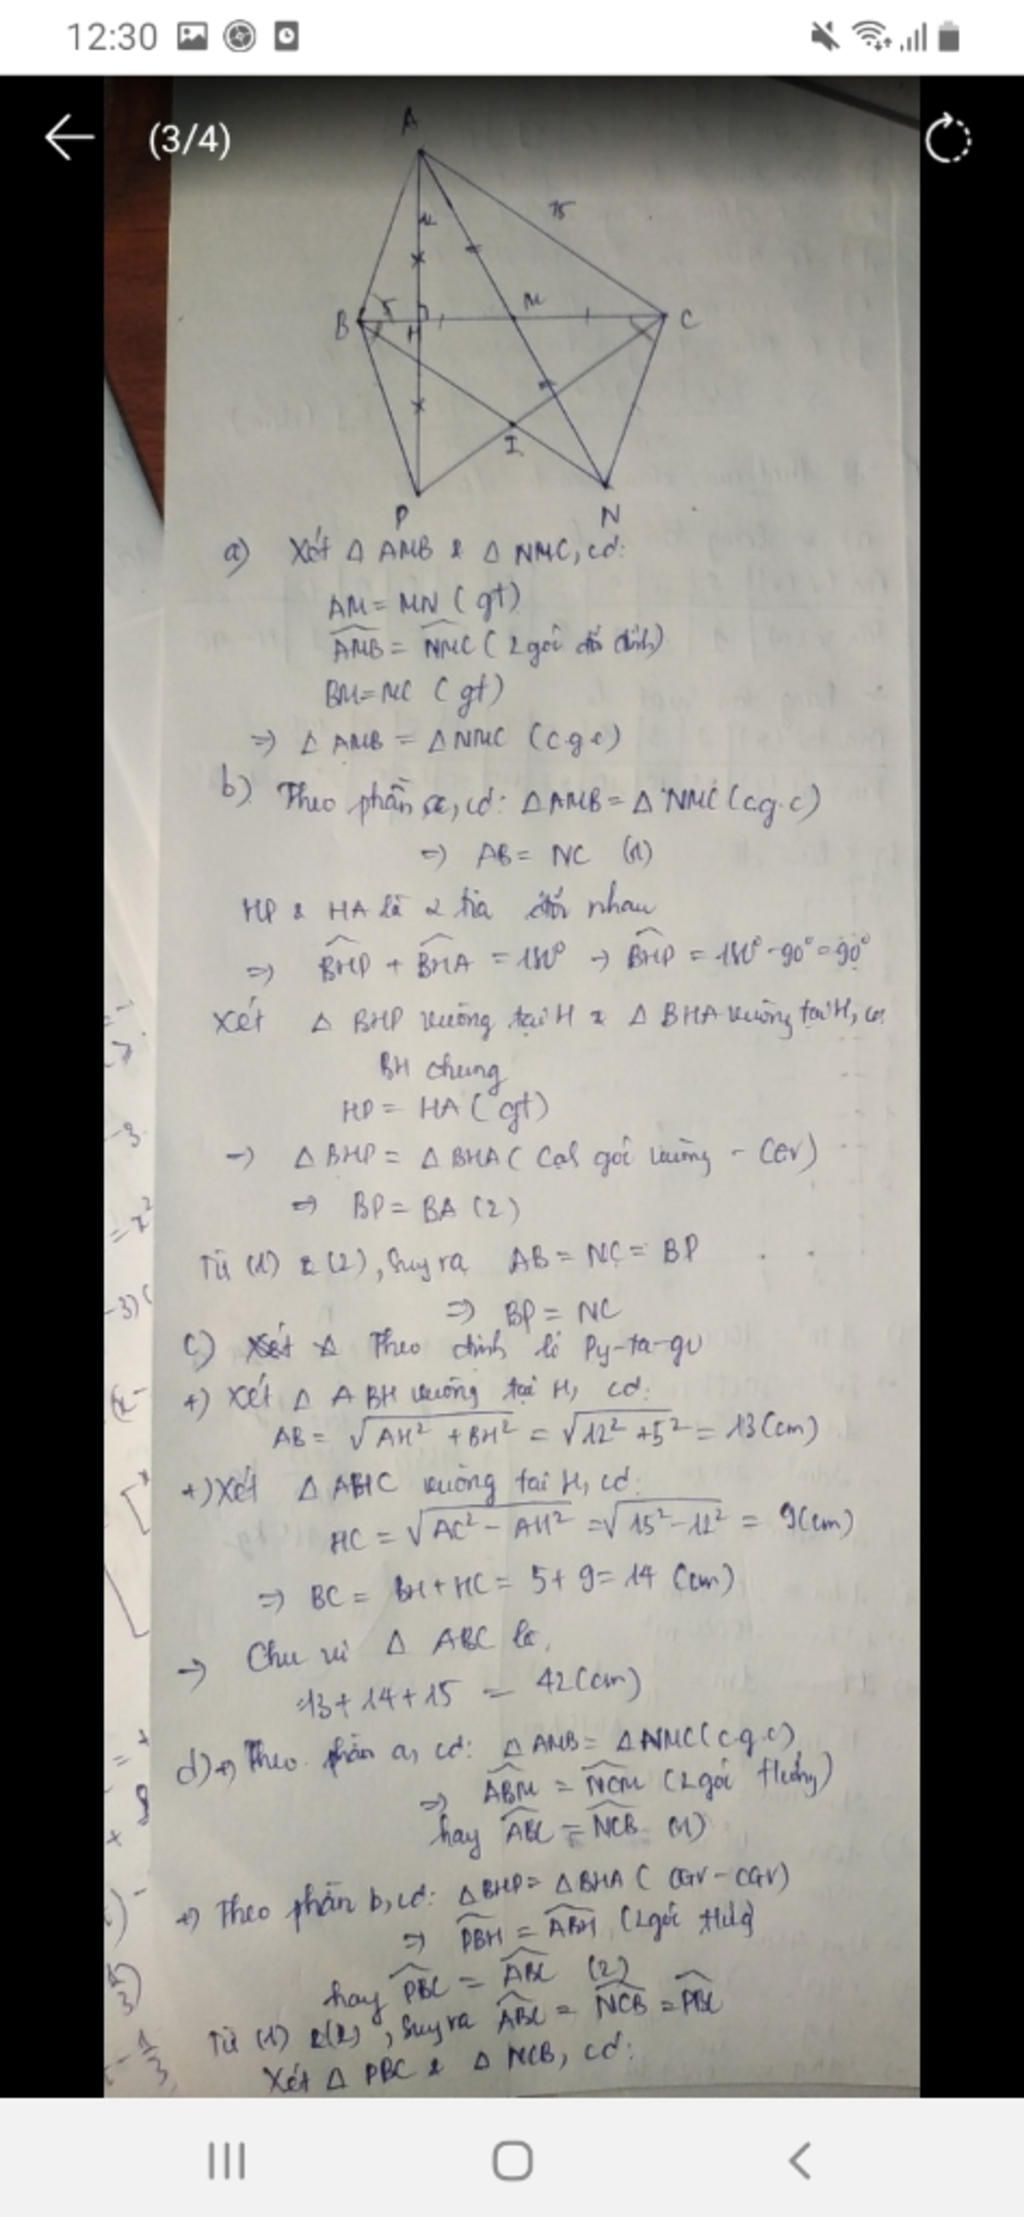 12:30
(3/4)
A
15
B
5
H
M
C
I
P
N
a) Xét Δ AMB & Δ NMC, có:
AM = MN (gt)
AMB = NMC (2 góc đối đỉnh)
BM = MC (gt)
=> Δ AMB = Δ NMC (c.g.c)
b) Theo phần a, có: Δ AMB = Δ NMC (c.g.c)
=> AB = NC (1)
HP & HA là 2 tia đối nhau
=> BHP + BHA = 180° → BHP = 180° - 90° = 90°
Xét Δ BHP vuông tại H & Δ BHA vuông tại H, có
BH chung
HP = HA (gt)
→ Δ BHP = Δ BHA ( góc vuông - CGV)
=> BP = BA (2)
Từ (1) & (2), suy ra AB = NC = BP
=> BP = NC
c) Theo định lí Py-ta-go
+) Xét Δ ABH vuông tại H, có:
AB = √AH² + BH² = √12² + 5² = 13 (cm)
+) Xét Δ AHC vuông tại H, có:
HC = √AC² - AH² = √15² - 12² = 9 (cm)
=> BC = BH + HC = 5 + 9 = 14 (cm)
→ Chu vi Δ ABC là
13 + 14 + 15 = 42 (cm)
d) +) Theo phần a, có: Δ AMB = Δ NMC (c.g.c)
=> ABM = NCM (2 góc tương)
hay ABC = NCB (1)
+) Theo phần b, có: Δ BHP = Δ BHA ( CGV - CGV)
=> PBH = ABH (2 góc)
hay PBC = ABC (2)
Từ (1) & (2), suy ra ABC = NCB = PBC
Xét Δ PBC & Δ NCB, có: